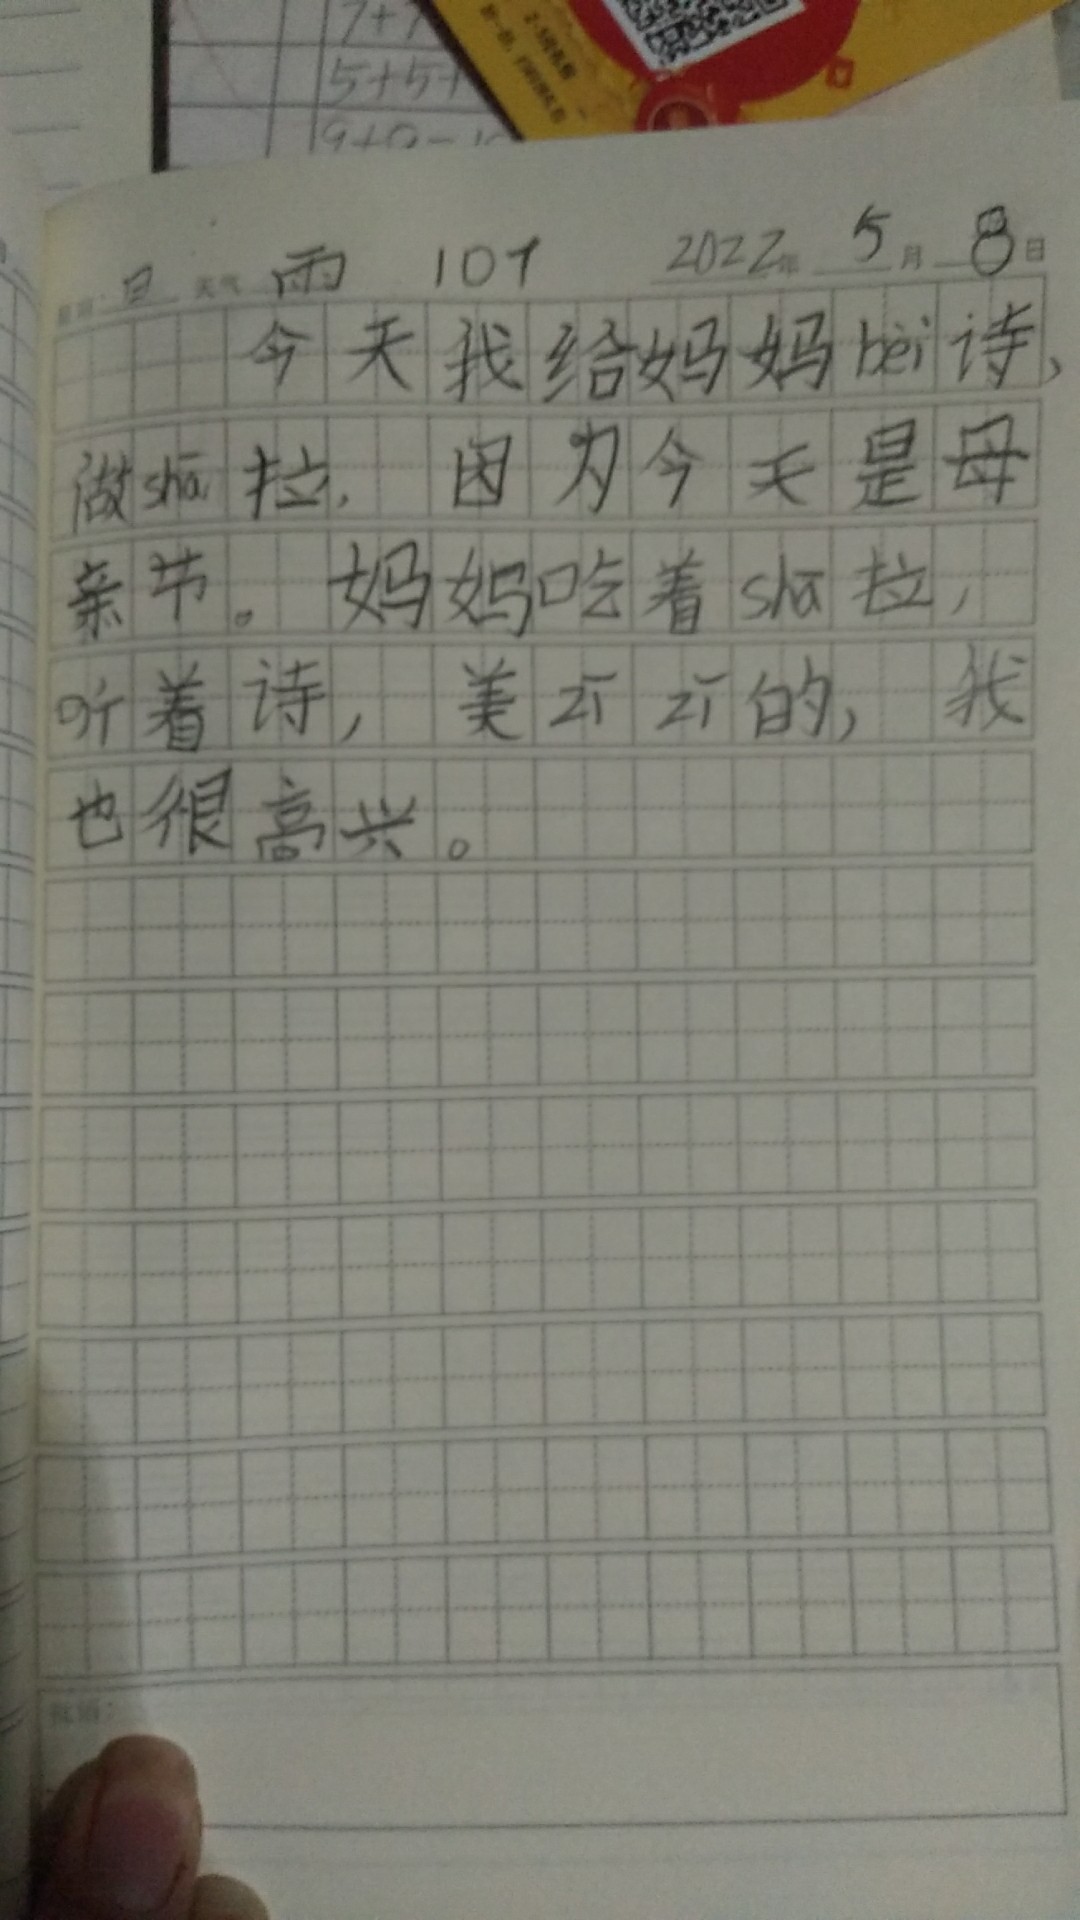 7+7
5+5+
日 天气 雨 107 2022年 5月 8日
今天我给妈妈bèi诗,
做shā拉, 因为今天是母
亲节。妈妈吃着shā拉,
听着诗, 美zī zī的, 我
也很高兴。